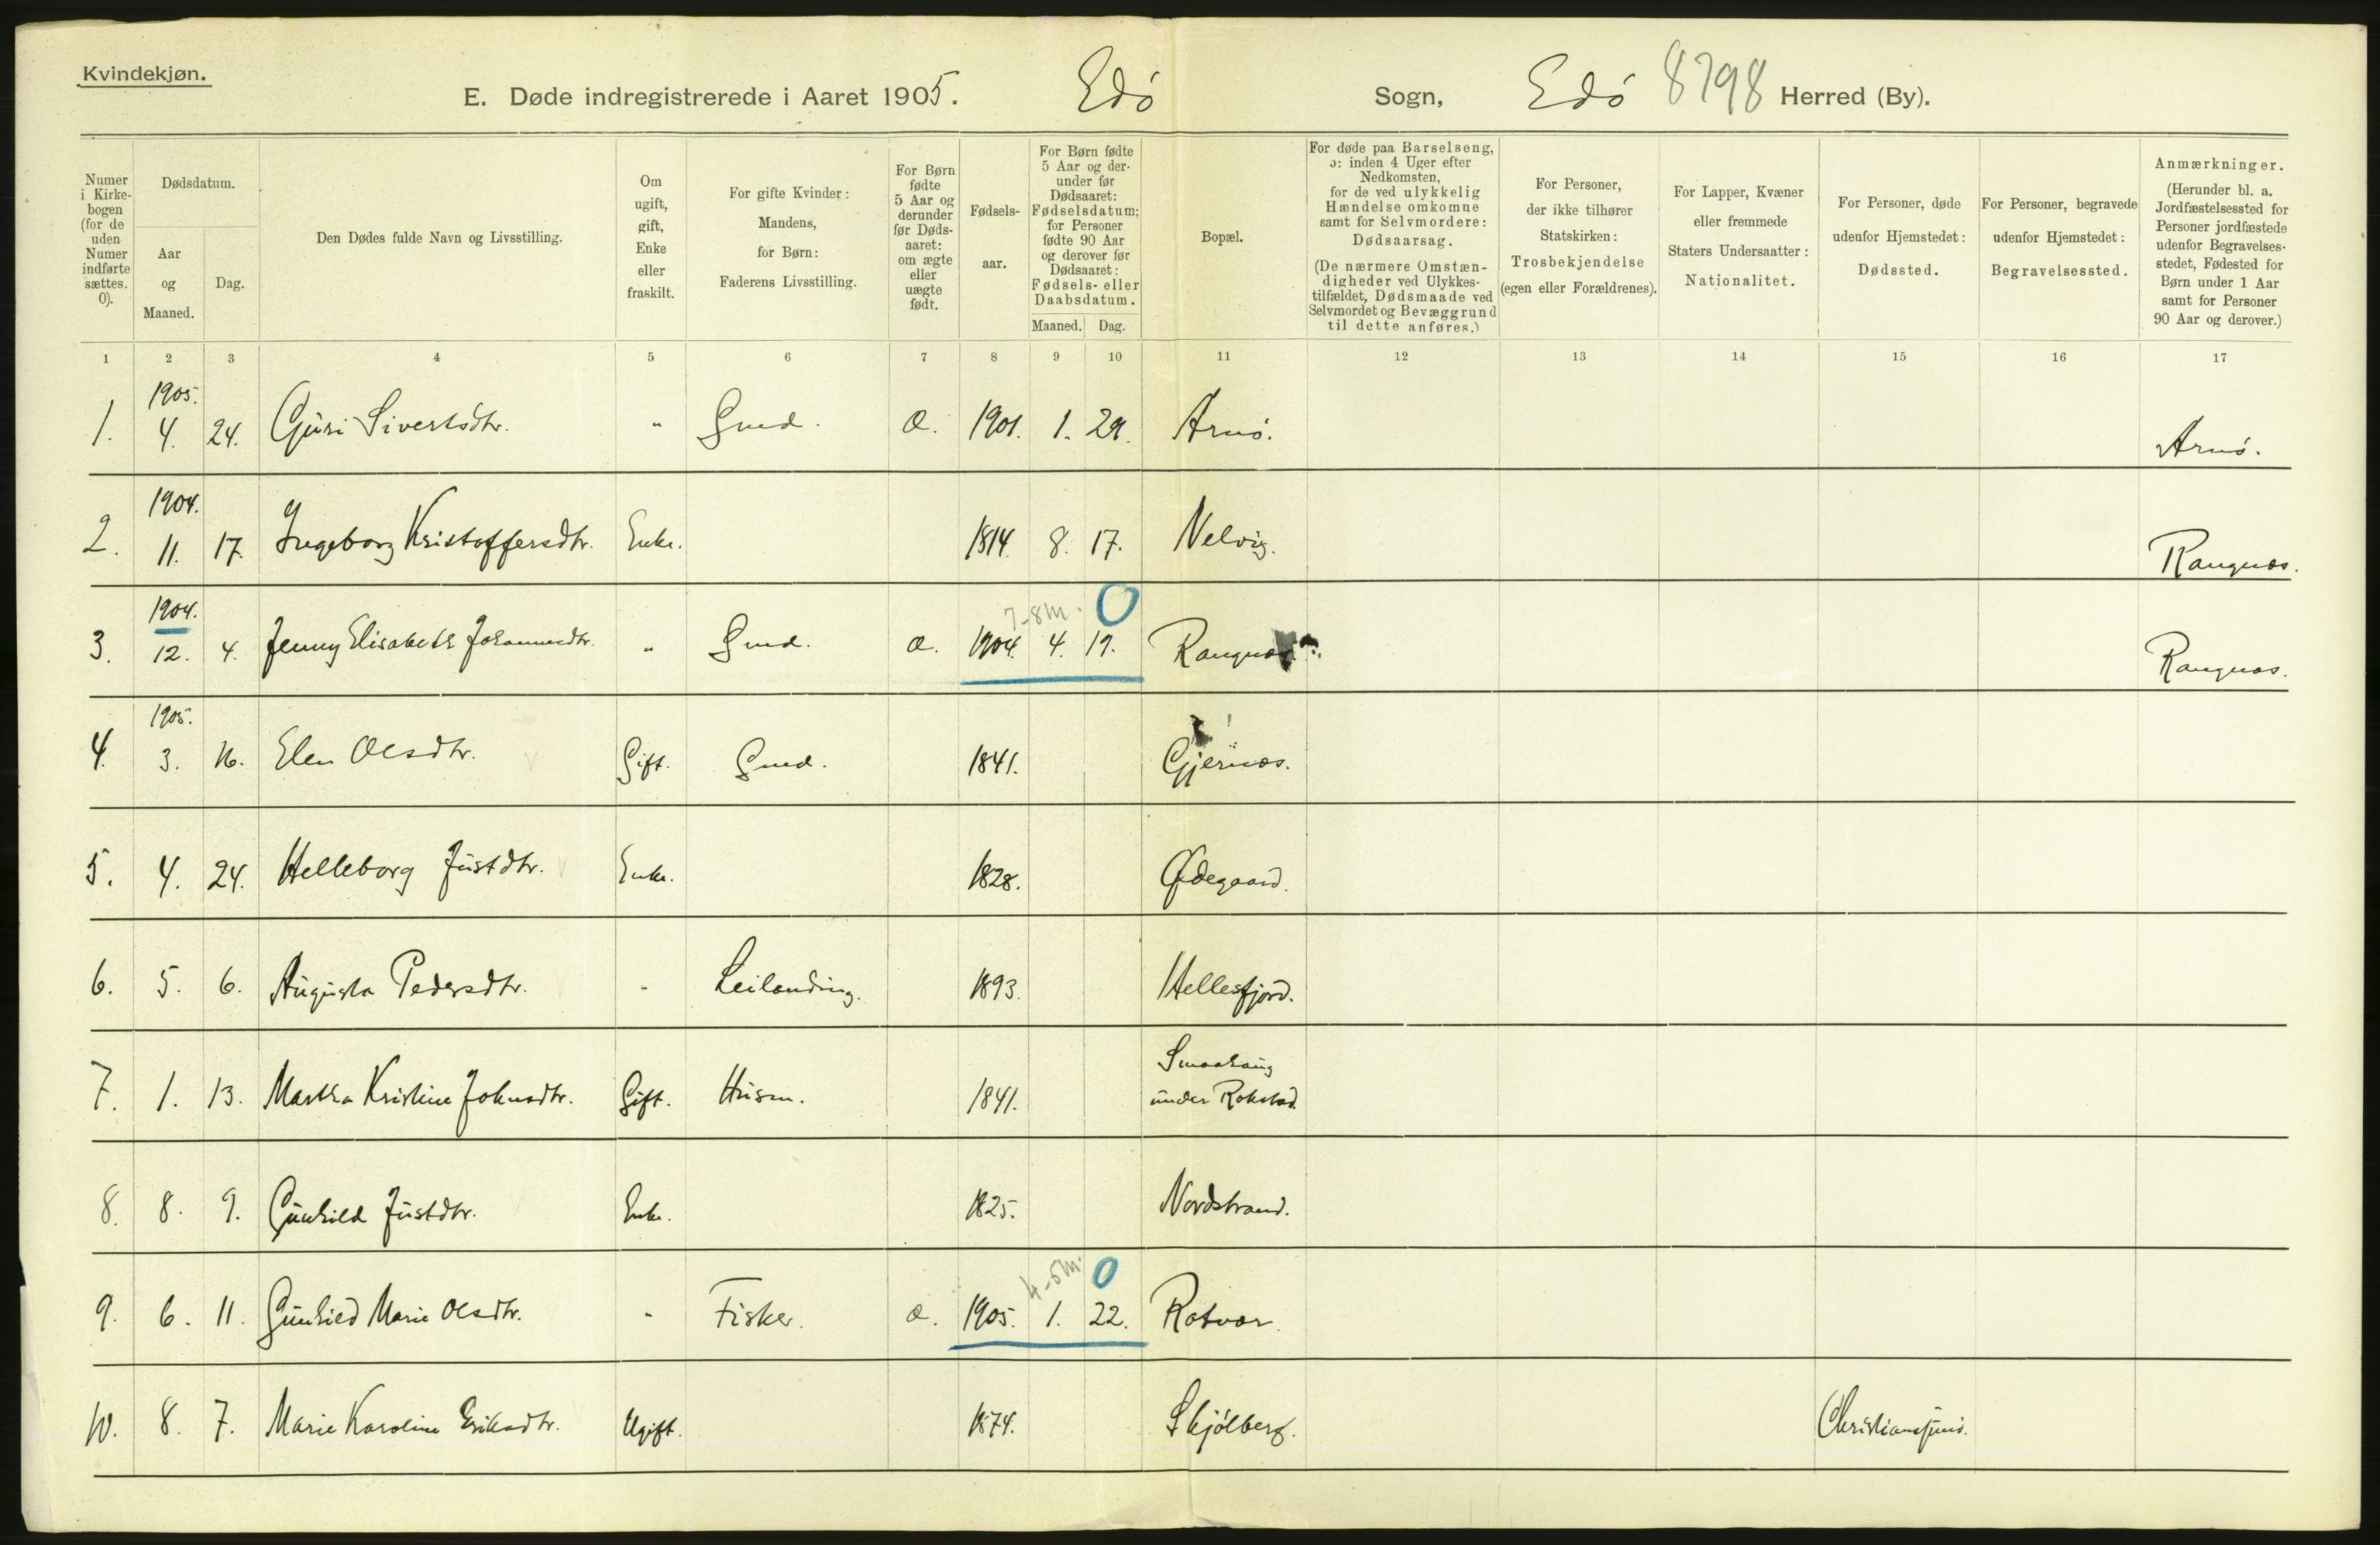 Kvindekjøn.
E. Døde indregistrerede i Aaret 1905. Edö Sogn, Edö 8798 Herred (By).
Numer i Kirkebogen (for de uden Numer indførte sættes. 0).
Dødsdatum.
Aar og Maaned.
Dag.
Den Dødes fulde Navn og Livsstilling.
Om ugift, gift, Enke eller fraskilt.
For gifte Kvinder: Mandens, for Børn: Faderens Livsstilling.
For Børn fødte 5 Aar og derunder før Dødsaaret: om ægte eller uægte født.
Fødselsaar.
For Børn fødte 5 Aar og derunder før Dødsaaret: Fødselsdatum; for Personer fødte 90 Aar og derover før Dødsaaret: Fødsels- eller Daabsdatum.
Maaned. Dag.
Bopæl.
For døde paa Barselseng, ɔ: inden 4 Uger efter Nedkomsten, for de ved ulykkelig Hændelse omkomne samt for Selvmordere: Dødsaarsag.
(De nærmere Omstændigheder ved Ulykkestilfældet, Dødsmaade ved Selvmordet og Bevæggrund til dette anføres.)
For Personer, der ikke tilhører Statskirken: Trosbekjendelse (egen eller Forældrenes).
For Lapper, Kvæner eller fremmede Staters Undersaatter: Nationalitet.
For Personer, døde udenfor Hjemstedet: Dødssted.
For Personer, begravede udenfor Hjemstedet: Begravelsessted.
Anmærkninger.
(Herunder bl. a. Jordfæstelsessted for Personer jordfæstede udenfor Begravelsesstedet, Fødested for Børn under 1 Aar samt for Personer 90 Aar og derover.)
1 2 3 4 5 6 7 8 9 10 11 12 13 14 15 16 17
1905.
1. 4. 24. Guri Sivertsdtr. " Gmd. Æ. 1901. 1. 29. Arnö. Arnö.
1904.
2. 11. 17. Ingeborg Kristoffersdtr. Enke. 1814. 8. 17. Nelvig. Rangnæs.
1904. 7-8 m. 0
3. 12. 4. Jenny Elisabeth Johannesdtr. " Gmd. æ. 1904. 4. 19. Rangnæs. Rangnæs.
1905.
4. 3. 16. Elen Olsdtr. Gift. Gmd. 1841. Gjernæs.
5. 4. 24. Helleborg Justdtr. Enke. 1828. Ødegaard.
6. 5. 6. Augusta Pedersdtr. " Leilending. 1893. Hellesfjord.
Smaahaug
7. 1. 13. Martha Kristine Johnsdtr. Gift. Husm. 1841. under Rokstad.
8. 8. 9. Gunhild Justdtr. Enke. 1825. Nordstrand.
4-5 m. 0
9. 6. 11. Gunhild Marie Olsdtr. " Fisker. æ. 1905. 1. 22. Rotvær.
10. 8. 7. Marie Karoline Eriksdtr. Ugift. 1874. Skjölberg. Christianssund.